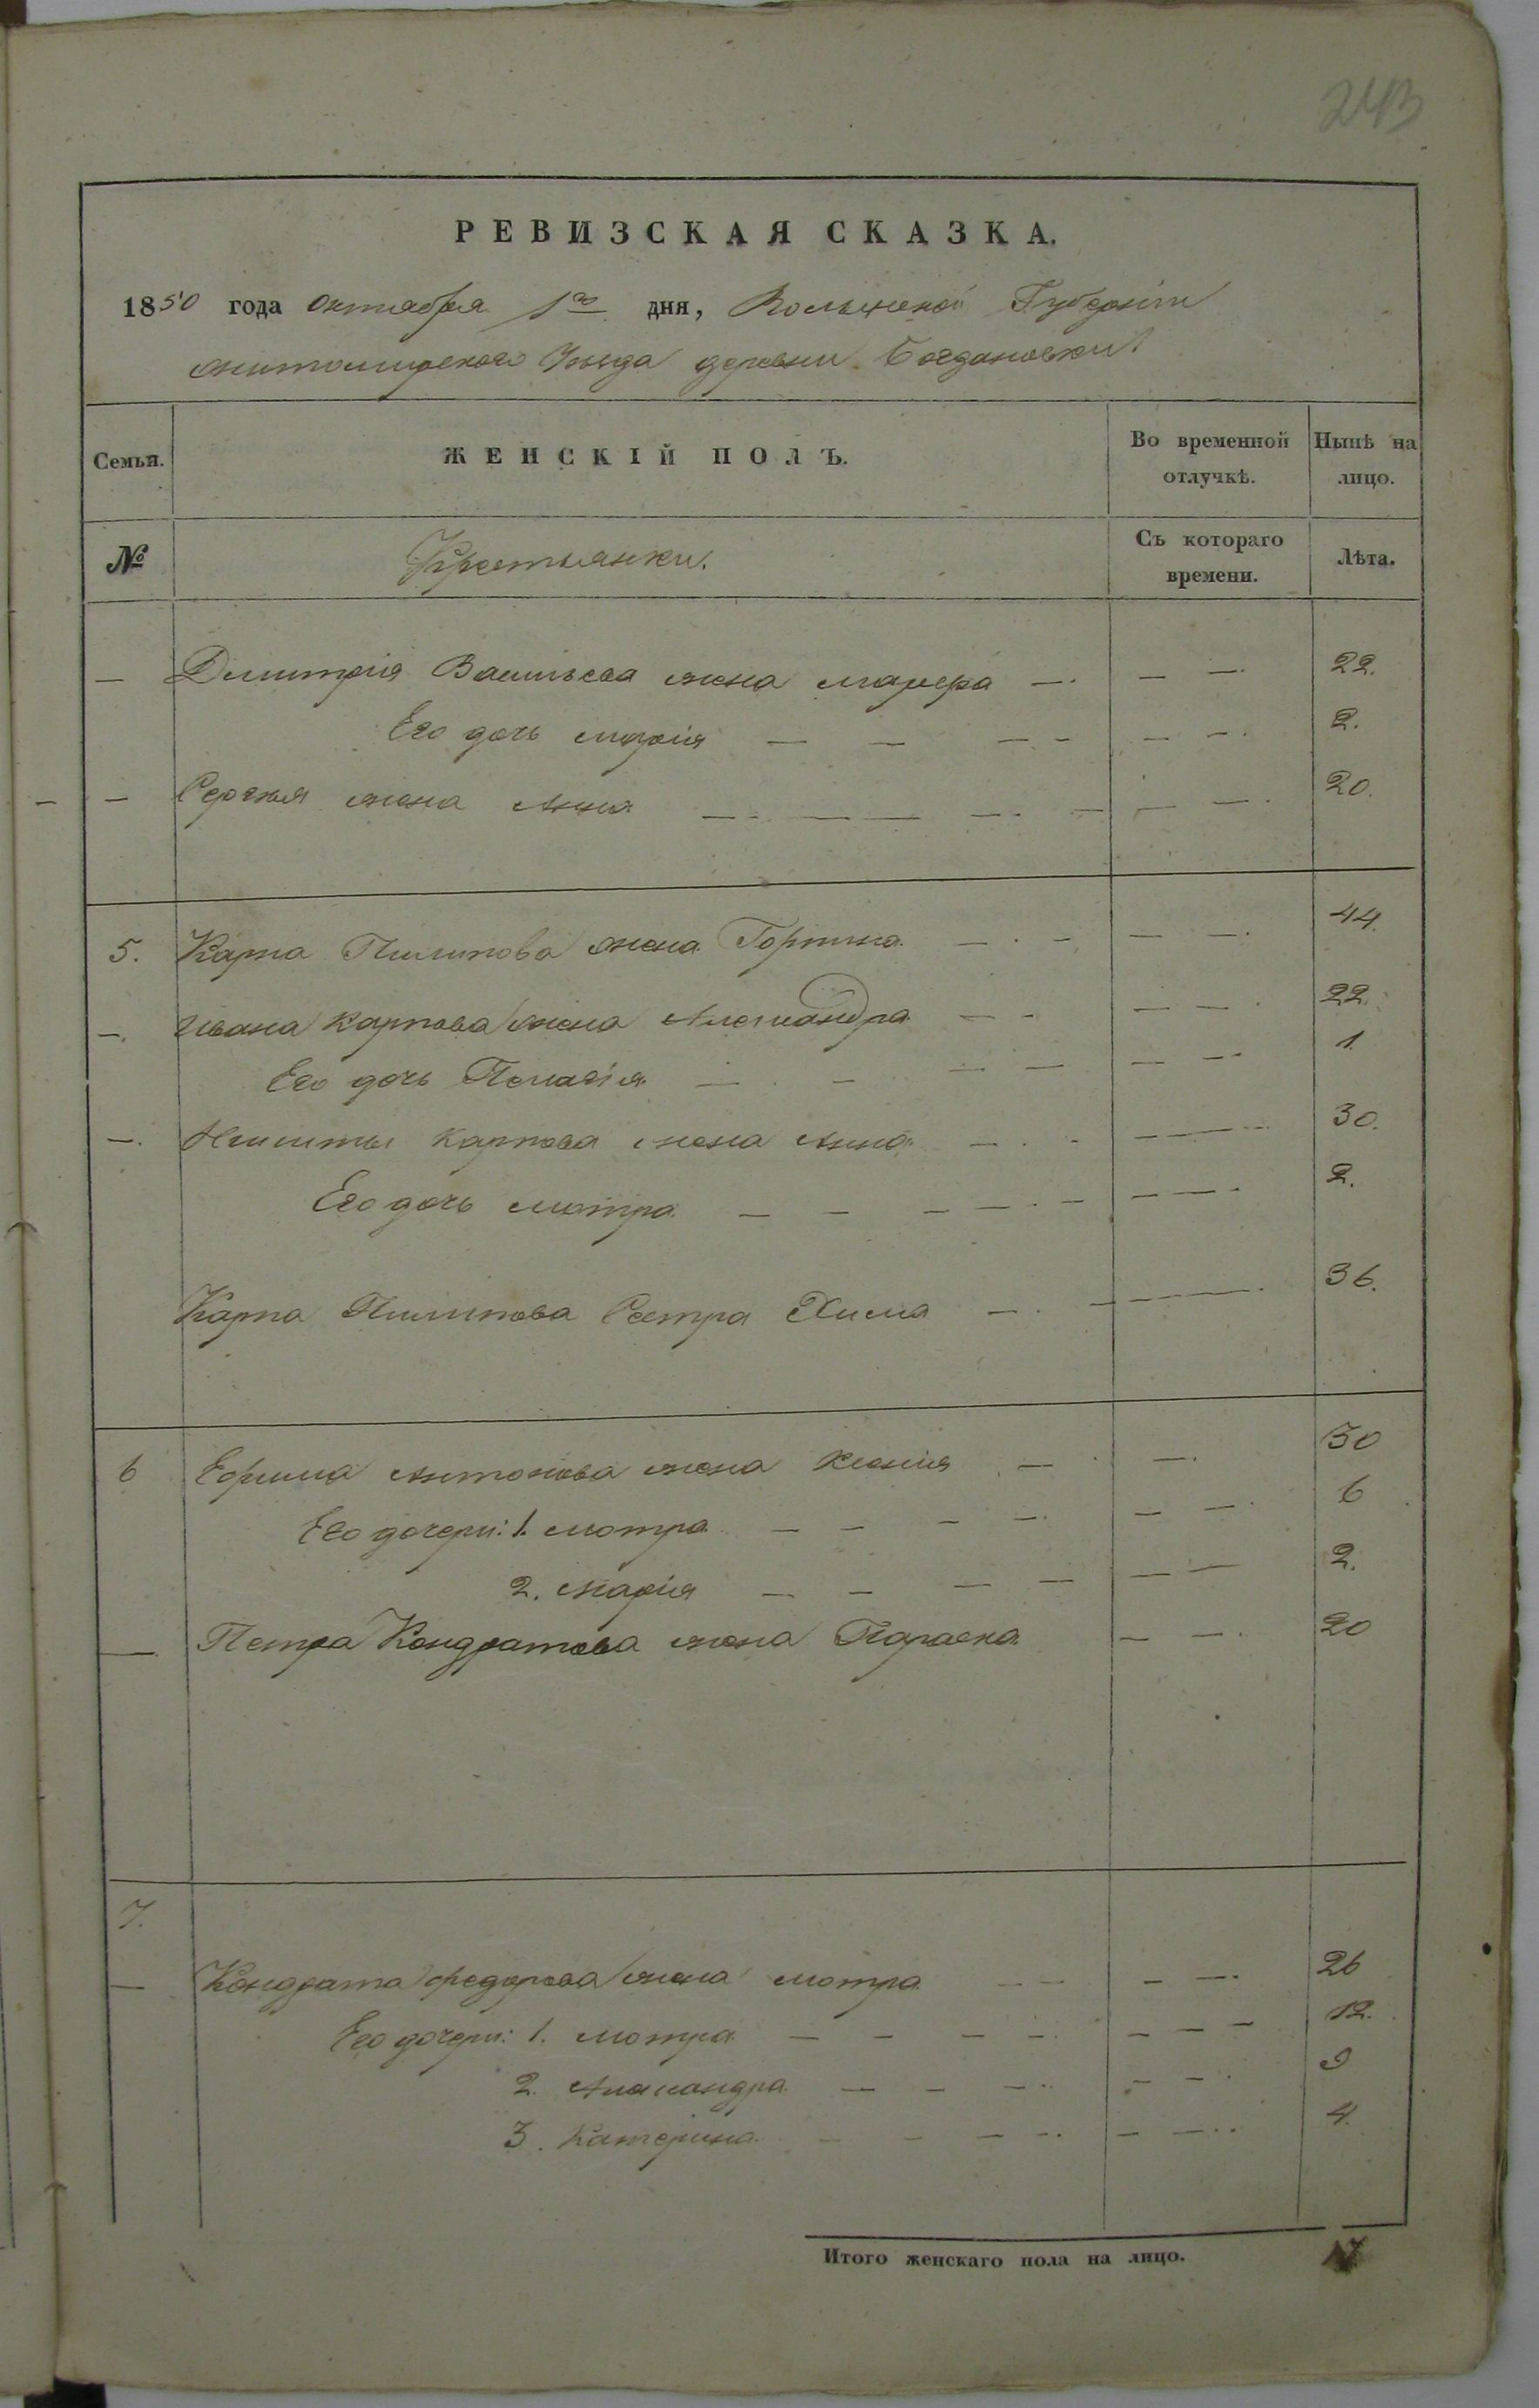 243
РЕВИЗСКАЯ СКАЗКА.
1850 года Октября 1го дня, Волынской Губерніи
житомирскаго Уезда деревни Богдановки
Семья. ЖЕНСКІЙ ПОЛЪ. Во временной отлучкѣ. Нынѣ на лицо.
№ Крестьянки. Съ котораго времени. Лѣта.
— Димитрія Васильева жена — — — 22.
Его дочь марія — — — - — - 2.
— Сергѣя жена Анна — — — — — — 20.
5. Карпа Пилипова жена Горпина — - — — 44.
— Ивана Карпова жена Александра — - — — 22.
Его дочь Пелагія — - — — — - 1
— Никиты Карпова жена Анна — - — — 30.
Его дочь мотра — — — — - — — 2.
Карпа Пилипова Сестра Хима — — — — 36.
6 Ефима Антонова жена Ксенія — — 30
Его дочери: 1. мотра — — — — — — 6
2. марія — — — — — — 2.
— Петра Кондратова жена Параска — — 20
7.
— Кондрата федорова жена мотра — — — — 26
Его дочери: 1. мотра — — — — — — — 12.
2. Александра — — — — — 9
3. Катерина — — — — — — 4
Итого женскаго пола на лицо. 17